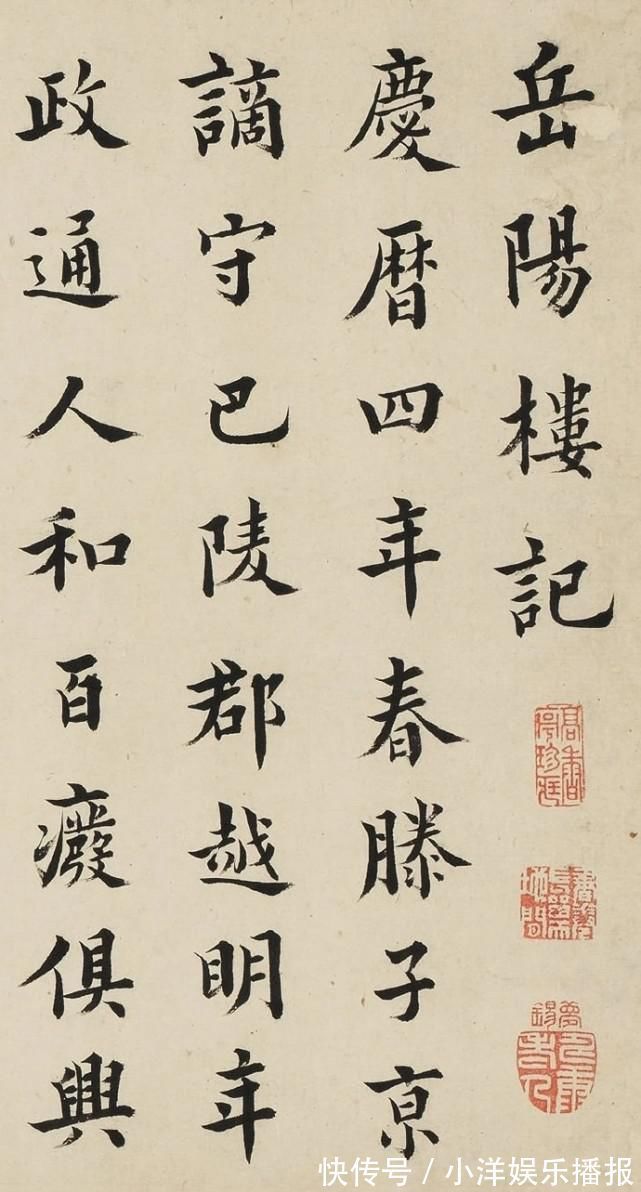 岳陽樓記
慶曆四年春滕子京
謫守巴陵郡越明年
政通人和百癈俱興
快传号/小洋娱乐播报